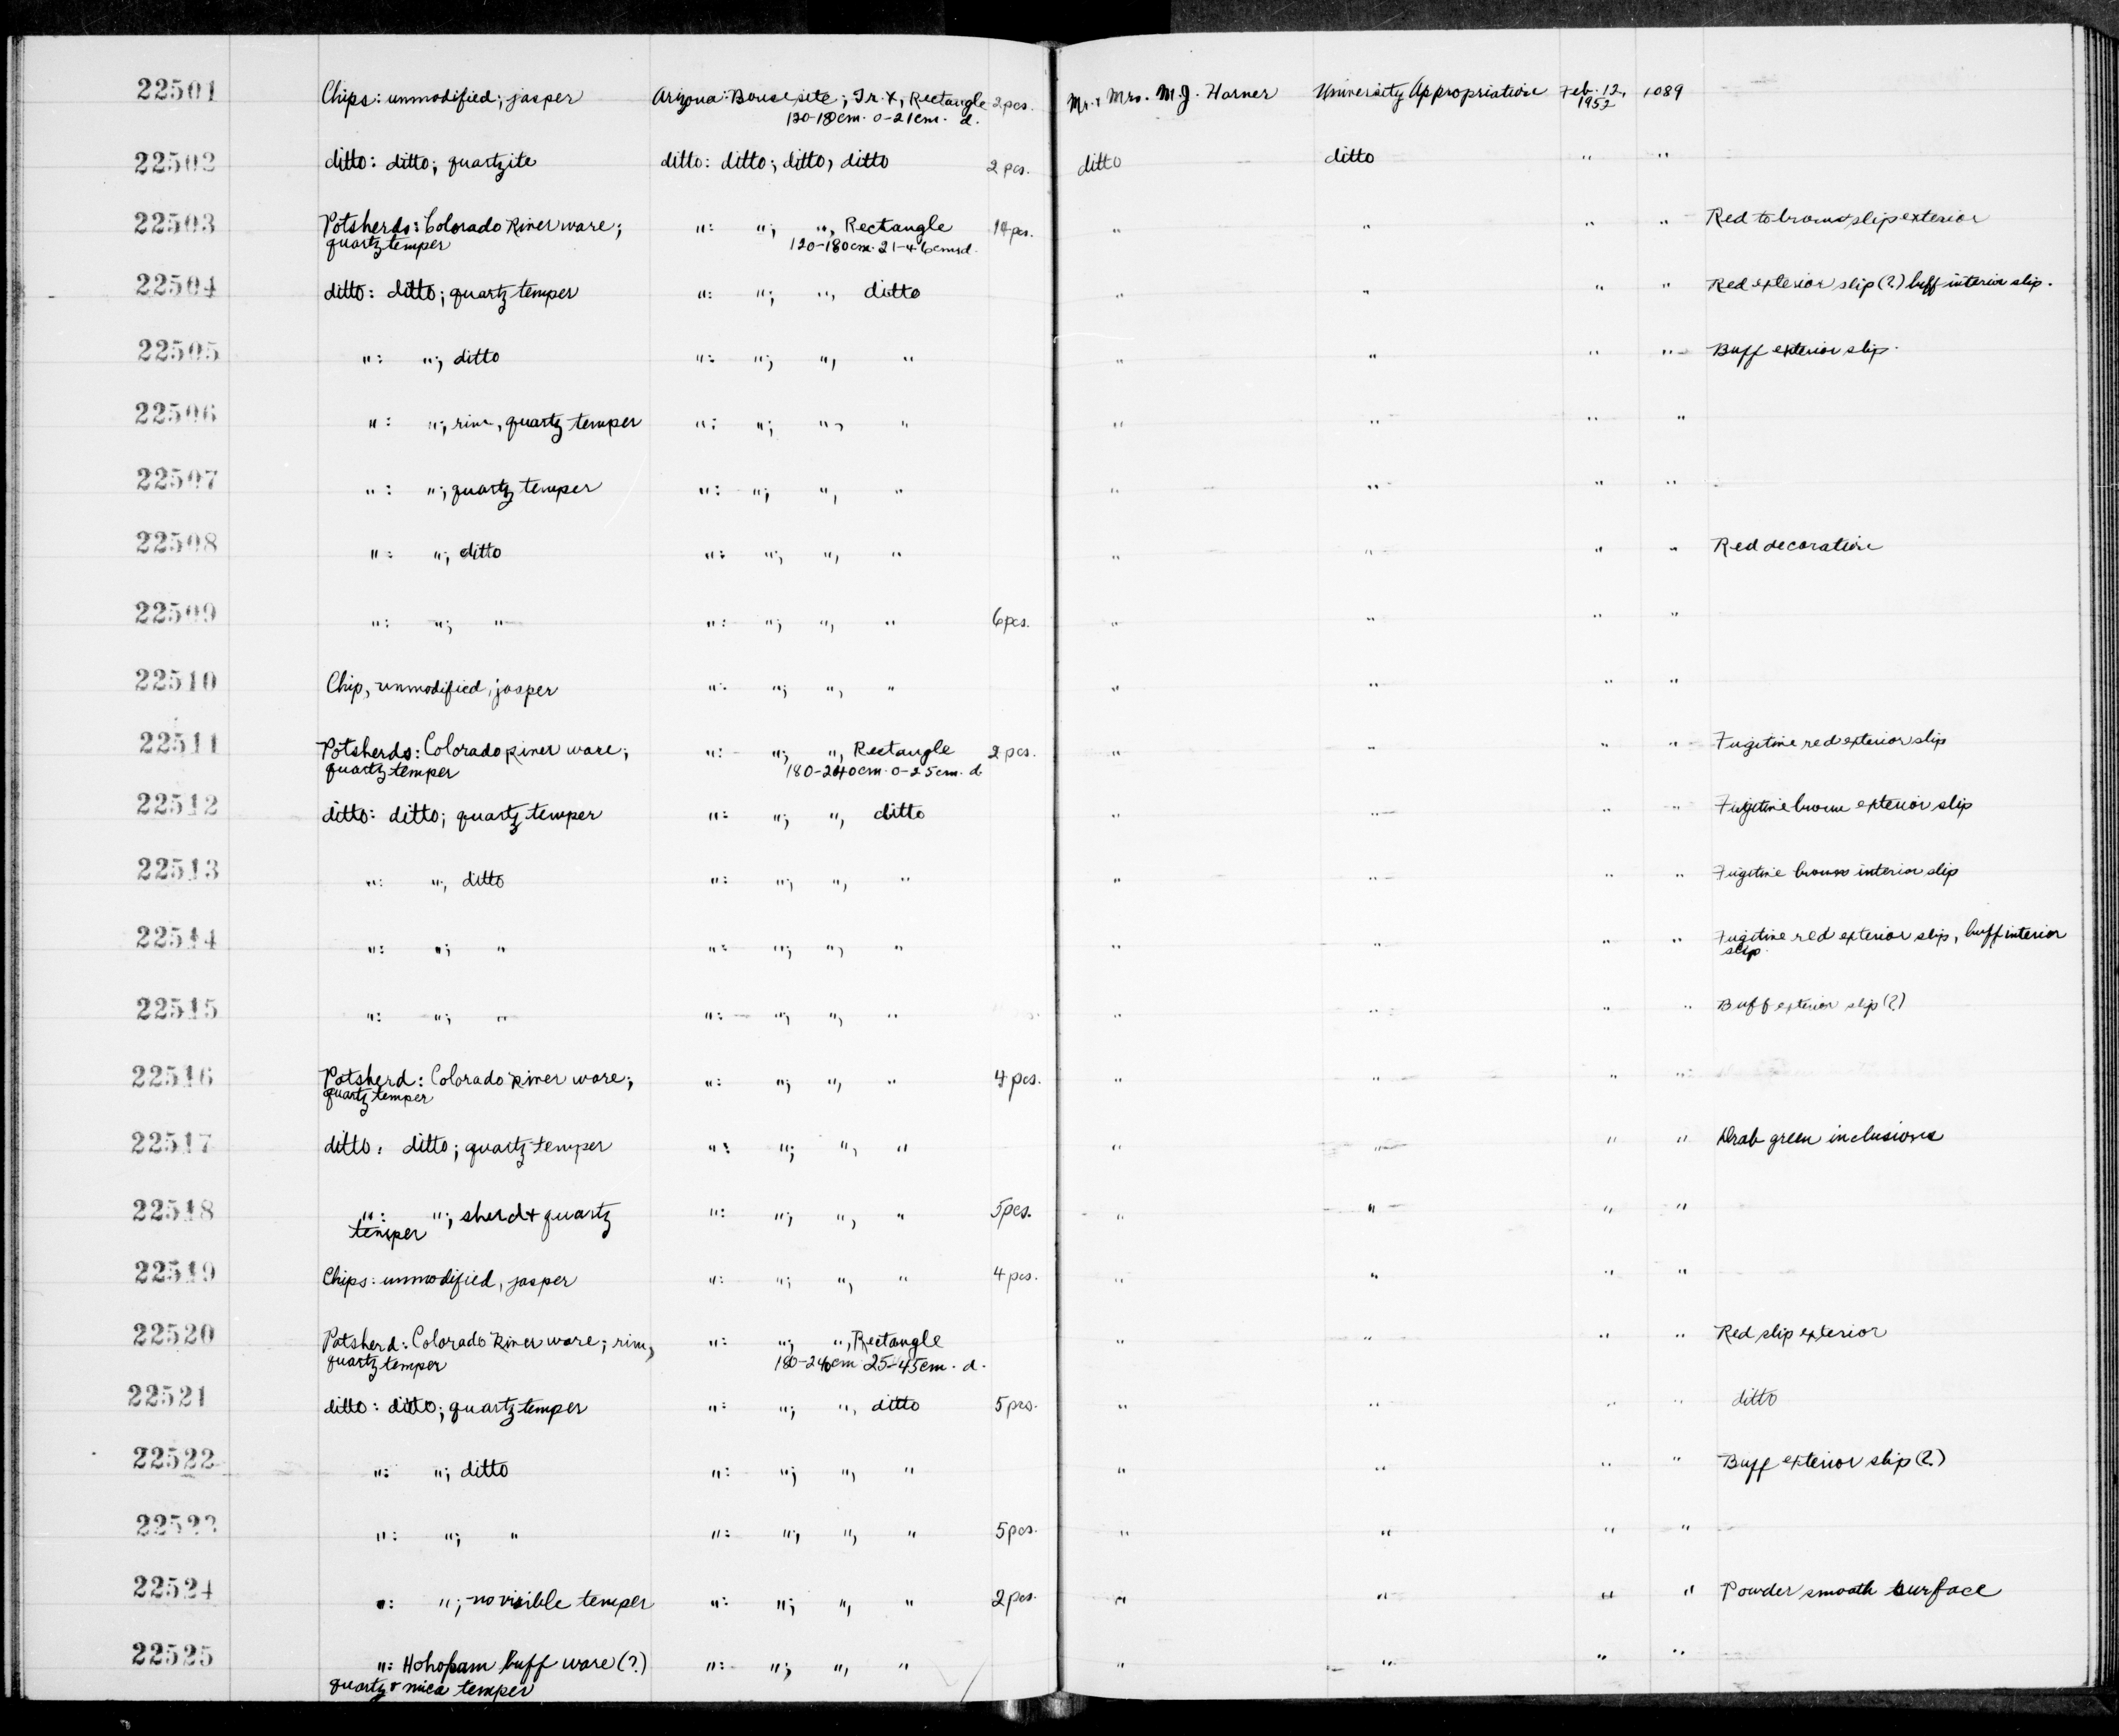 22501 Chips: unmodified; jasper Arizona: Bouse site; Tr. X, Rectangle 2 pcs. Mr. + Mrs. M.J. Harner University Appropriation Feb. 12, 1089
120-180cm. 0-21cm. d. 1952
22502 ditto: ditto; quartzite ditto: ditto; ditto, ditto 2 pcs. ditto ditto " "
22503 Potsherds: Colorado River ware; ": "; ", Rectangle 14 pcs. " " " " Red to brown slip exterior
quartz temper 120-180cm. 21-46cm d.
22504 ditto: ditto; quartz temper ": "; ", ditto " " " " Red exterior slip (?) buff interior slip.
22505 ": "; ditto ": "; ", " " " " " Buff exterior slip.
22506 ": "; rim, quartz temper ": "; ", " " " " "
22507 ": "; quartz temper ": "; ", " " " " "
22508 ": "; ditto ": "; ", " " " " " Red decoration
22509 ": "; " ": "; ", " 6 pcs. " " " "
22510 Chip, unmodified, jasper ": "; ", " " " " "
22511 Potsherds: Colorado River ware; ": "; ", Rectangle 2 pcs. " " " " Fugitive red exterior slip
quartz temper 180-240cm. 0-25cm. d
22512 ditto: ditto; quartz temper ": "; ", ditto " " " " Fugitive brown exterior slip
22513 ": "; ditto ": "; ", " " " " " Fugitive brown interior slip
22514 ": "; " ": "; ", " " " " " Fugitive red exterior slip, buff interior
slip
22515 ": "; " ": "; ", " " " " " Buff exterior slip (?)
22516 Potsherd: Colorado River ware; ": "; ", " 4 pcs. " " " "
quartz temper
22517 ditto: ditto; quartz temper ": "; ", " " " " " Drab green inclusions
22518 ": "; sherd + quartz ": "; ", " 5 pcs. " " " "
temper
22519 Chips: unmodified, jasper ": "; ", " 4 pcs. " " " "
22520 Potsherd: Colorado River ware; rim, ": "; ", Rectangle " " " " Red slip exterior
quartz temper 180-240cm 25-45cm. d.
22521 ditto: ditto; quartz temper ": "; ", ditto 5 pcs. " " " " ditto
22522 ": "; ditto ": "; ", " " " " " Buff exterior slip (?)
22523 ": "; " ": "; ", " 5 pcs. " " " "
22524 ": "; no visible temper ": "; ", " 2 pcs. " " " " Powder smooth surface
22525 ": Hohokam buff ware (?) ": "; ", " " " " "
quartz + mica temper